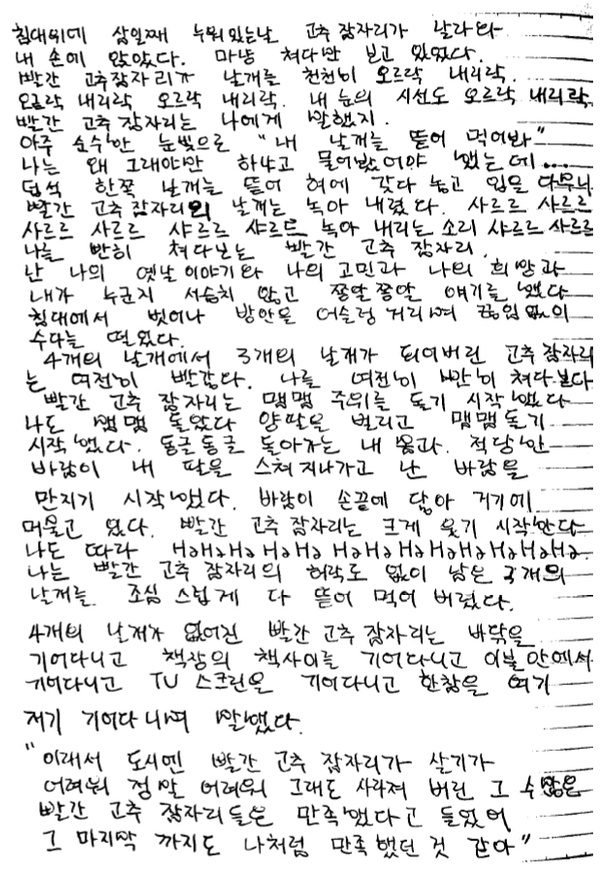 침대위에 삼일째 누워있는날 고추잠자리가 날라와
내 손에 앉았다. 마냥 쳐다만 보고 있었다.
빨간 고추잠자리가 날개를 천천히 오르락 내리락.
오르락 내리락 오르락 내리락. 내 눈의 시선도 오르락 내리락
빨간 고추 잠자리는 나에게 말했지.
아주 순수한 눈빛으로 "내 날개를 뜯어 먹어봐"
나는 왜 그래야만 하냐고 물어봤어야 했는데....
덥석 한쪽 날개를 뜯어 혀에 갖다 놓고 입을 다무니
빨간 고추 잠자리의 날개는 녹아 내렸다. 사르르 사르르
사르르 사르르 샤르르 샤르르 녹아 내리는 소리 샤르르 사르르
나를 빤히 쳐다보는 빨간 고추 잠자리.
난 나의 옛날이야기와 나의 고민과 나의 희망과
내가 누군지 서슴치 않고 쫑알쫑알 얘기를 했다
침대에서 벗어나 방안을 어슬렁거리며 끊임없이
수다를 떨었다.
4개의 날개에서 3개의 날개가 되어버린 고추잠자리
는 여전히 빨갛다. 나를 여전히 빤히 쳐다본다
빨간 고추 잠자리는 맴맴 주위를 돌기 시작했다
나도 맴맴 돌았다 양팔을 벌리고 맴맴돌기
시작했다. 둥글둥글 돌아가는 내 몸과. 적당한
바람이 내 팔을 스쳐지나가고 난 바람을
만지기 시작하였다. 바람이 손끝에 닿아 거기에
머물고 있다. 빨간 고추잠자리는 크게 웃기 시작한다
나도 따라 HaHaHaHaHa HaHaHaHaHaHaHa.
나는 빨간 고추 잠자리의 허락도 없이 남은 3개의
날개를 조심스럽게 다 뜯어 먹어 버렸다.
4개의 날개가 없어진 빨간 고추 잠자리는 바닥을
기어다니고 책장의 책사이를 기어다니고 이불안에서
기어다니고 TV 스크린을 기어다니고 한참을 여기
저기 기어다니며 말했다.
"이래서 도시엔 빨간 고추 잠자리가 살기가
어려워 정말 어려워 그래도 사라져 버린 그 수많은
빨간 고추 잠자리들은 만족했다고 들었어
그 마지막 까지도 나처럼 만족했던 것 같아"